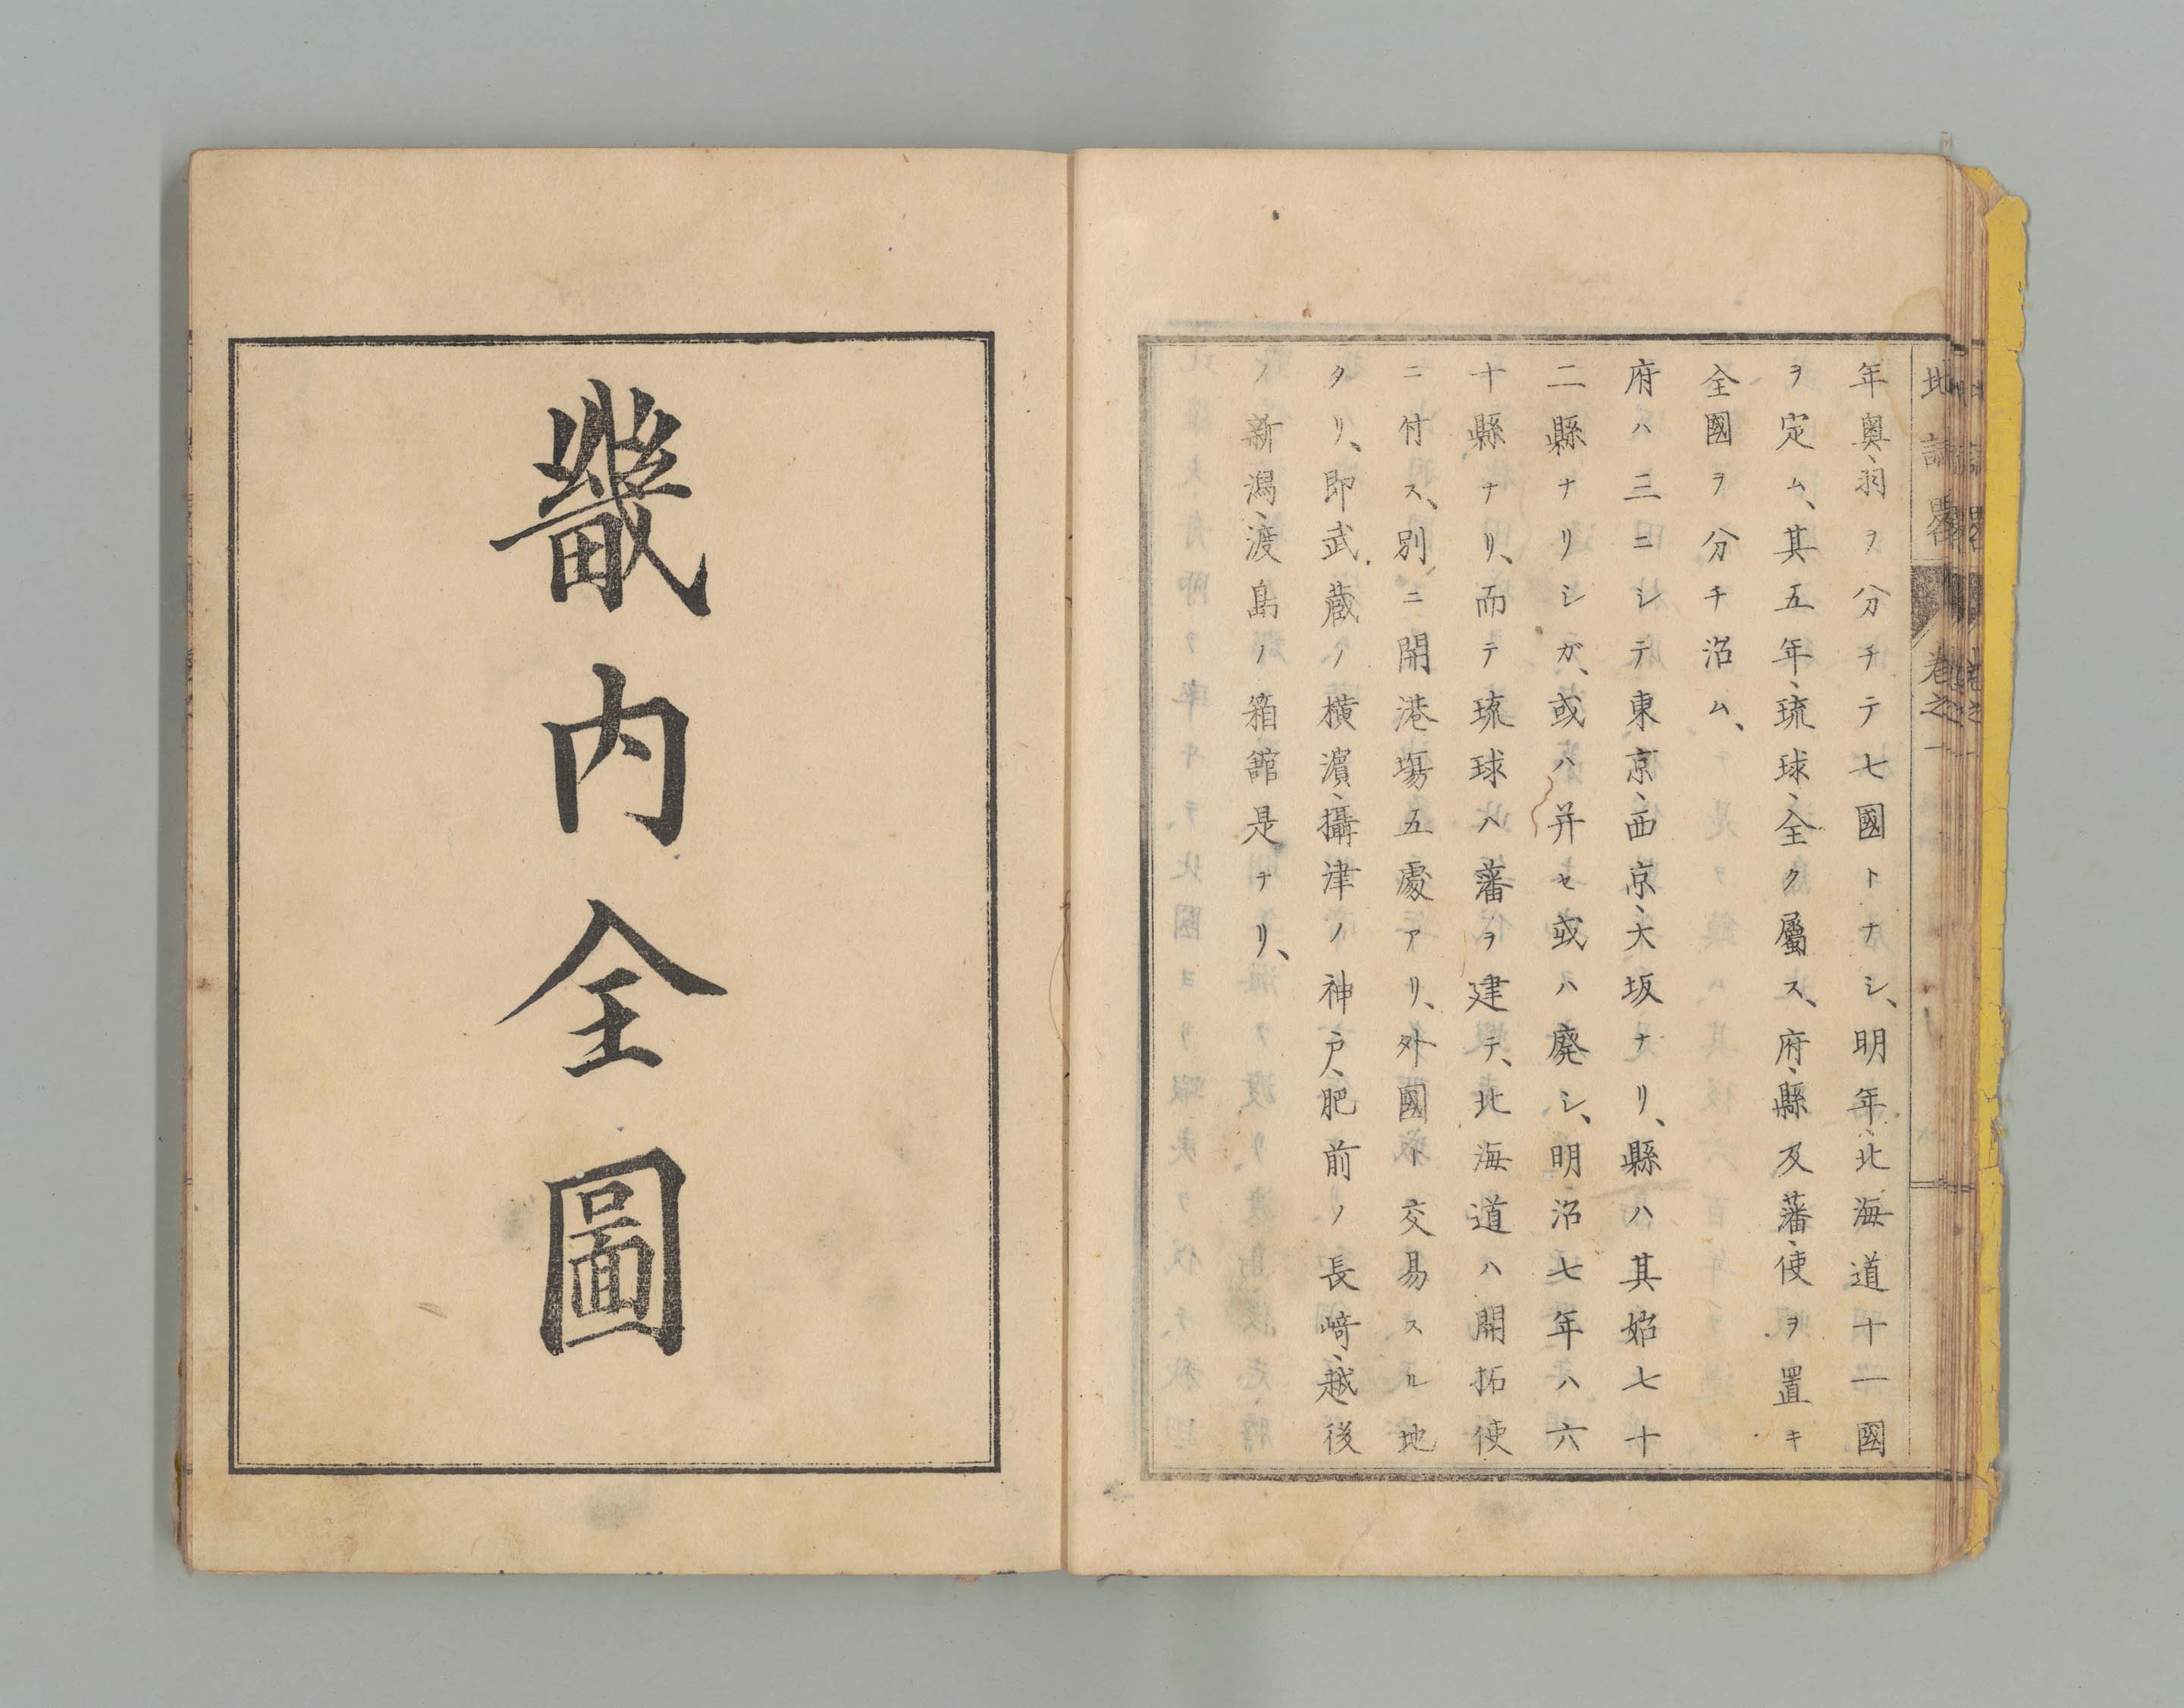 地誌畧
卷之一
年奥、羽ヲ分チテ七國トナシ、明年、北海道十一國
ヲ定ム、其五年、琉球、全ク屬ス、府、縣及藩、使ヲ置キ
全國ヲ分チ治ム、
府ハ三ニシテ東京、西京、大坂ナリ、縣ハ其始七十
二縣ナリシガ、或ハ并セ或ハ廃シ、明治七年ハ六
十縣ナリ、而テ琉球ハ藩ヲ建テ、北海道ハ開拓使
ニ付ス、別ニ開港塲五處アリ、外國ト交易スル地
タリ、即武蔵ノ横濵、攝津ノ神戸、肥前ノ長﨑、越後
ノ新潟、渡島ノ箱舘是ナリ、
畿内全圖